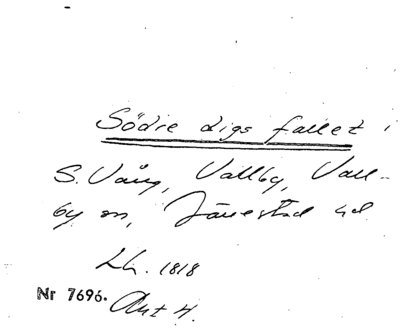 Södre digs fallet i
S. Vång, Vallby, Vall-
by sn, Järrestad hd
Lh. 1818
Nr 7696. Akt 4.